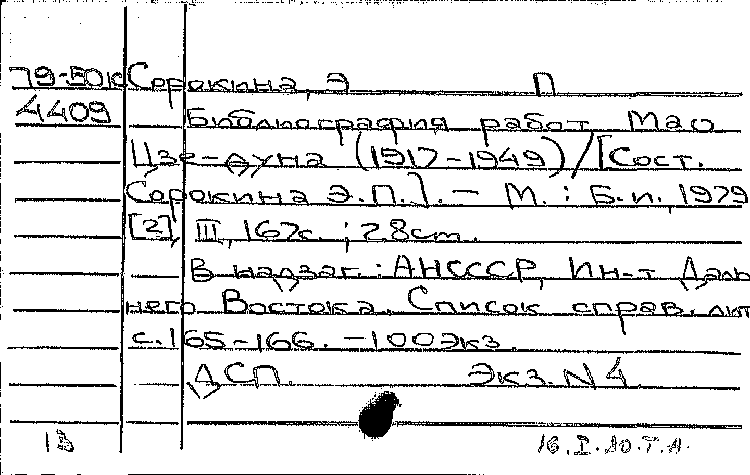 79-50к Сорокина, Э П
4409 Библиография работ Мао
Цзе-дуна (1917-1949)/[Сост.
Сорокина Э.П.]. - М. : Б.и., 1979
[2], III, 167с. ; 28cm.
В надзаг. : АНСССР, Ин-т Даль
него Востока. Список справ. лит
с.165-166. - 100экз.
ДСП. Экз. N4
13 16.I.80.Т.А.